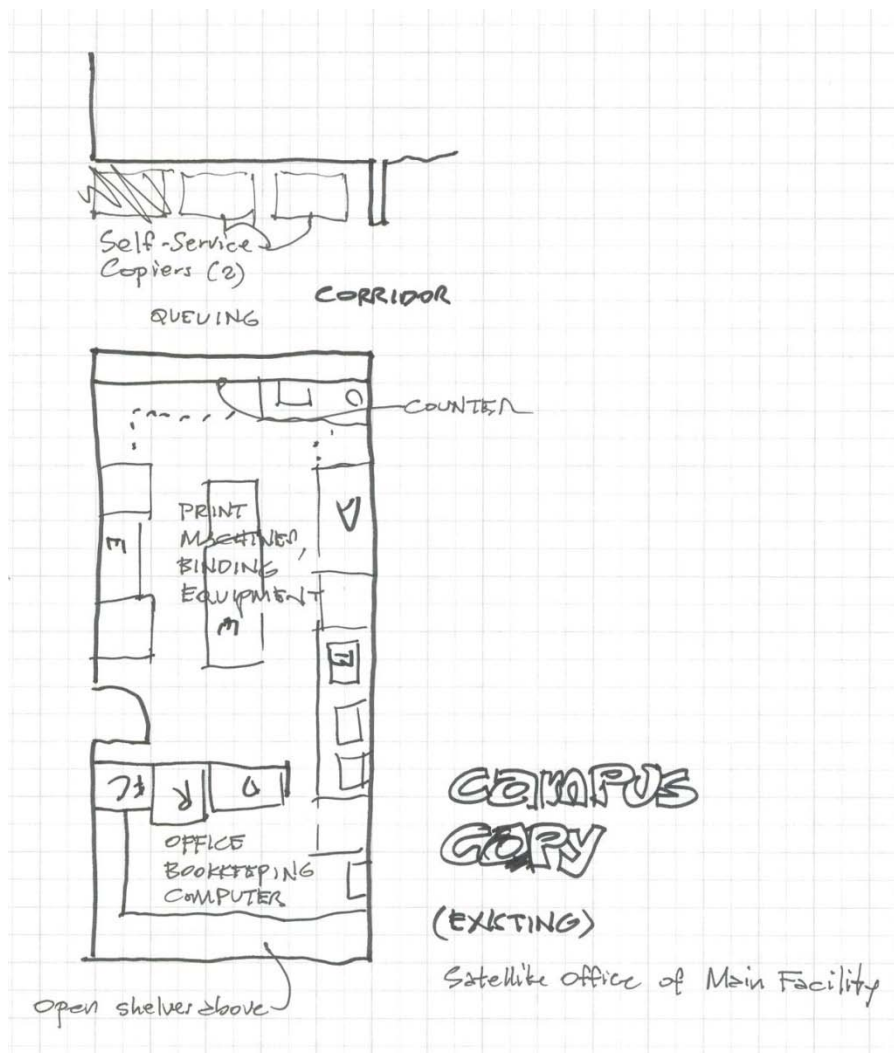 Self-Service
Copiers (2)
CORRIDOR
QUEUING
COUNTER
PRINT
MACHINES,
BINDING
EQUIPMENT
E
E
OFFICE
BOOKKEEPING
COMPUTER
CAMPUS
COPY
(EXISTING)
Satellite Office of Main Facility
Open shelves above